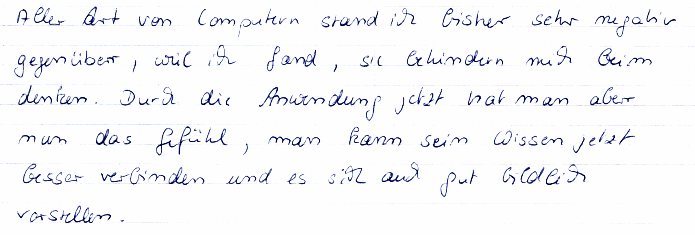 Aller Art von Computern stand ich bisher sehr negativ
gegenüber, weil ich fand, sie behindern mich beim
denken. Durch die Anwendung jetzt hat man aber
nun das Gefühl, man kann sein Wissen jetzt
besser verbinden und es sich auch gut bildlich
vorstellen.